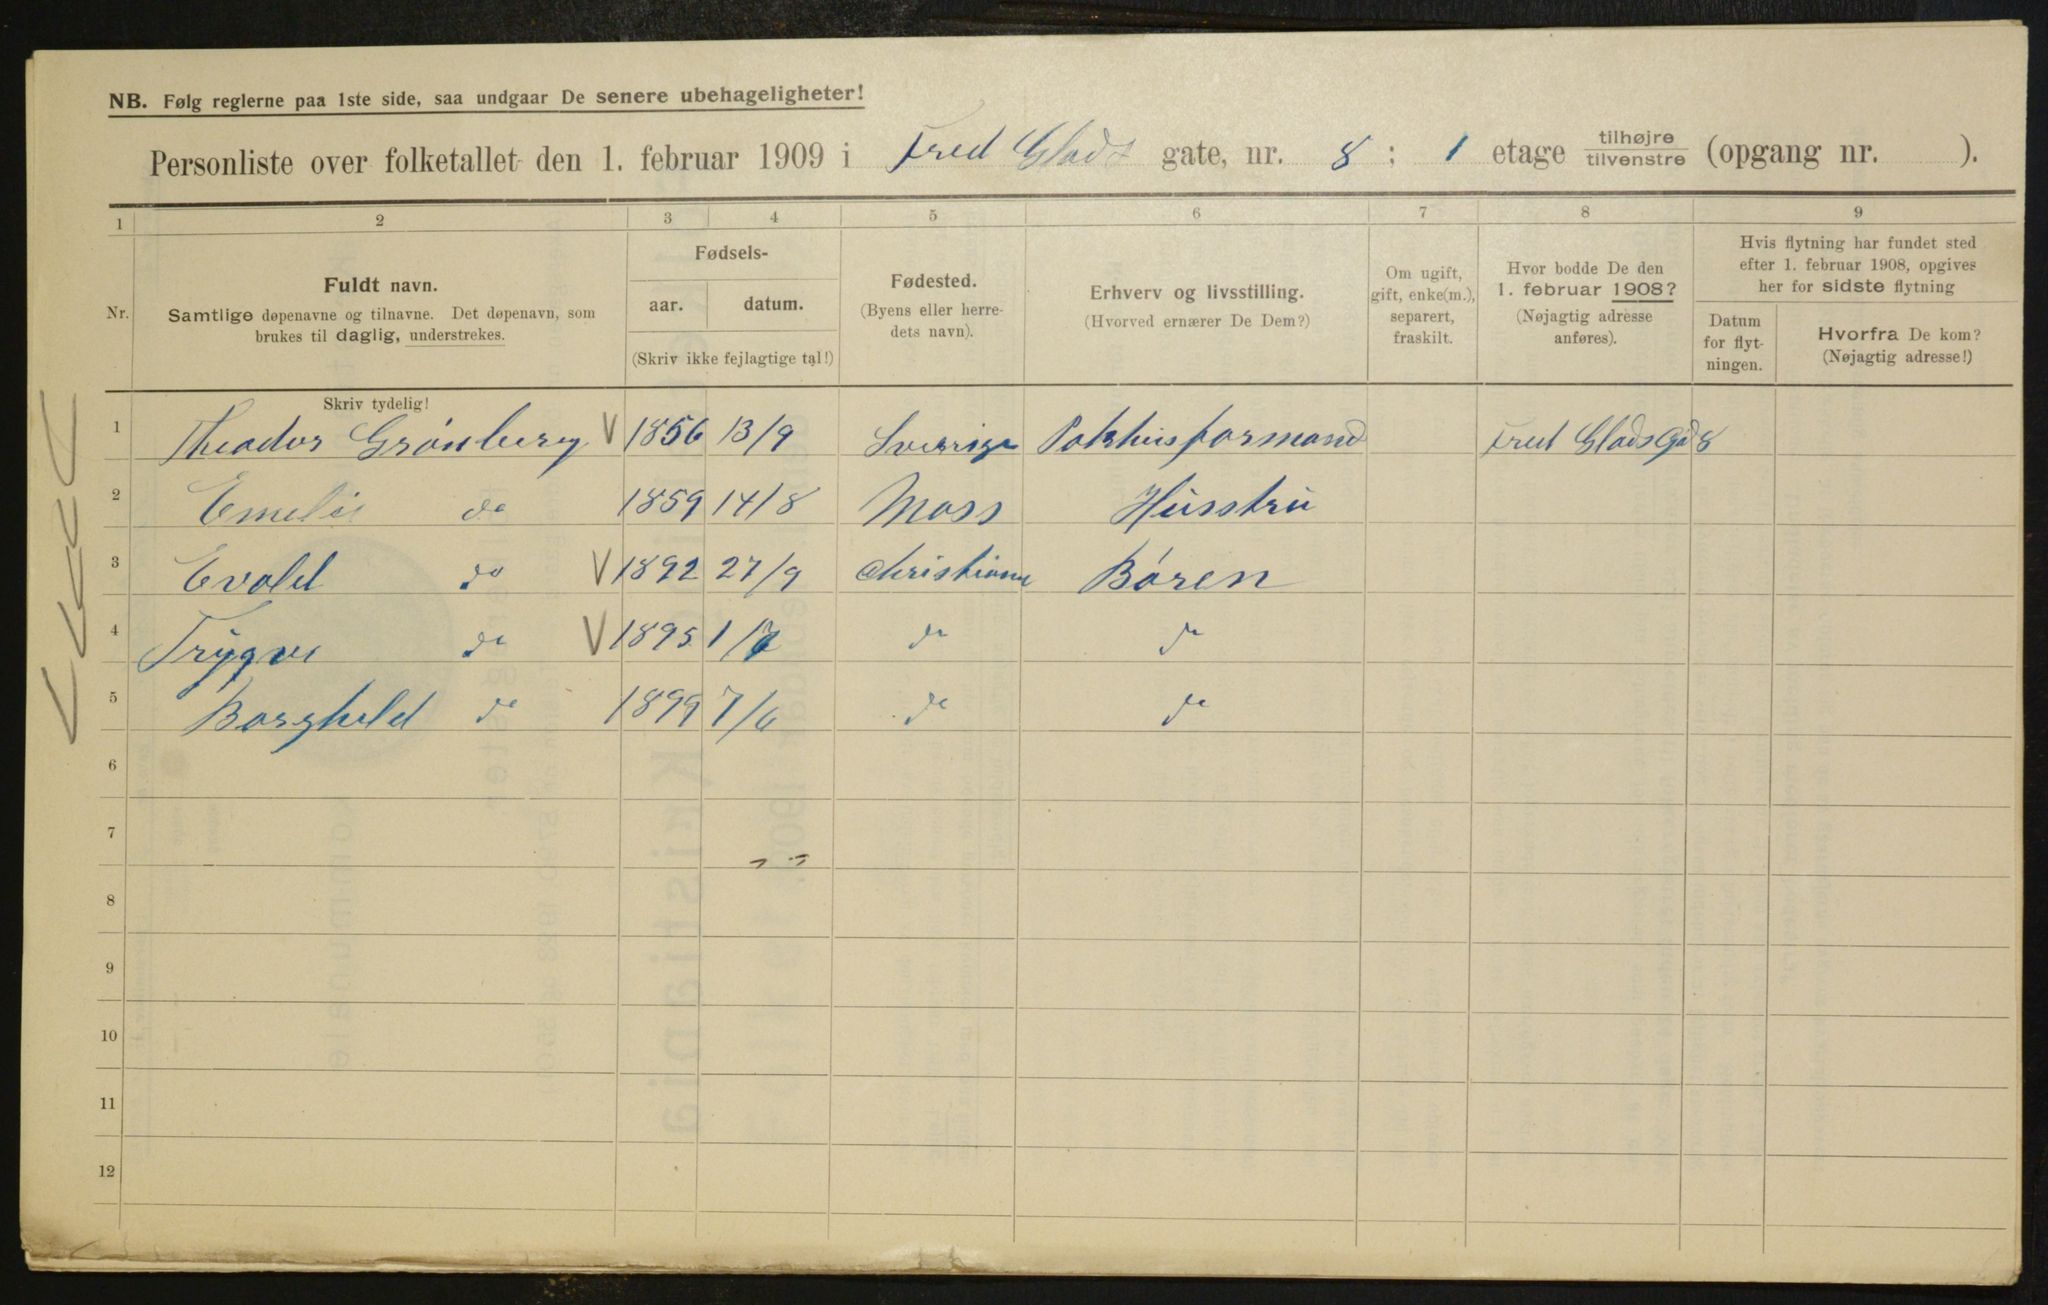 NB. Følg reglerne paa 1ste side, saa undgaar De senere ubehageligheter!
Personliste over folketallet den 1. februar 1909 i Fred Glads gate, nr. 8 : 1 etage tilhøjre/tilvenstre (opgang nr. ).
1 2 3 4 5 6 7 8 9
Nr.
Fuldt navn.
Samtlige døpenavne og tilnavne. Det døpenavn, som
brukes til daglig, understrekes.
Skriv tydelig!
Fødsels-
aar. datum.
(Skriv ikke fejlagtige tal!)
Fødested.
(Byens eller herre-
dets navn).
Erhverv og livsstilling.
(Hvorved ernærer De Dem?)
Om ugift,
gift, enke(m.),
separert,
fraskilt.
Hvor bodde De den
1. februar 1908?
(Nøjagtig adresse
anføres).
Hvis flytning har fundet sted
efter 1. februar 1908, opgives
her for sidste flytning
Datum
for flyt-
ningen.
Hvorfra De kom?
(Nøjagtig adresse!)
1 Theodor Grønberg V 1856 13/9 Sverige Pakhusformand Fred Glads Gd 8
2 Emelie do 1859 14/8 Moss Hüsstrü
3 Evald do V 1892 27/9 Christiania Børen
4 Trygve do V 1895 1/7 do do
5 Borghild do 1899 7/6 do do
6
7
8
9
10
11
12